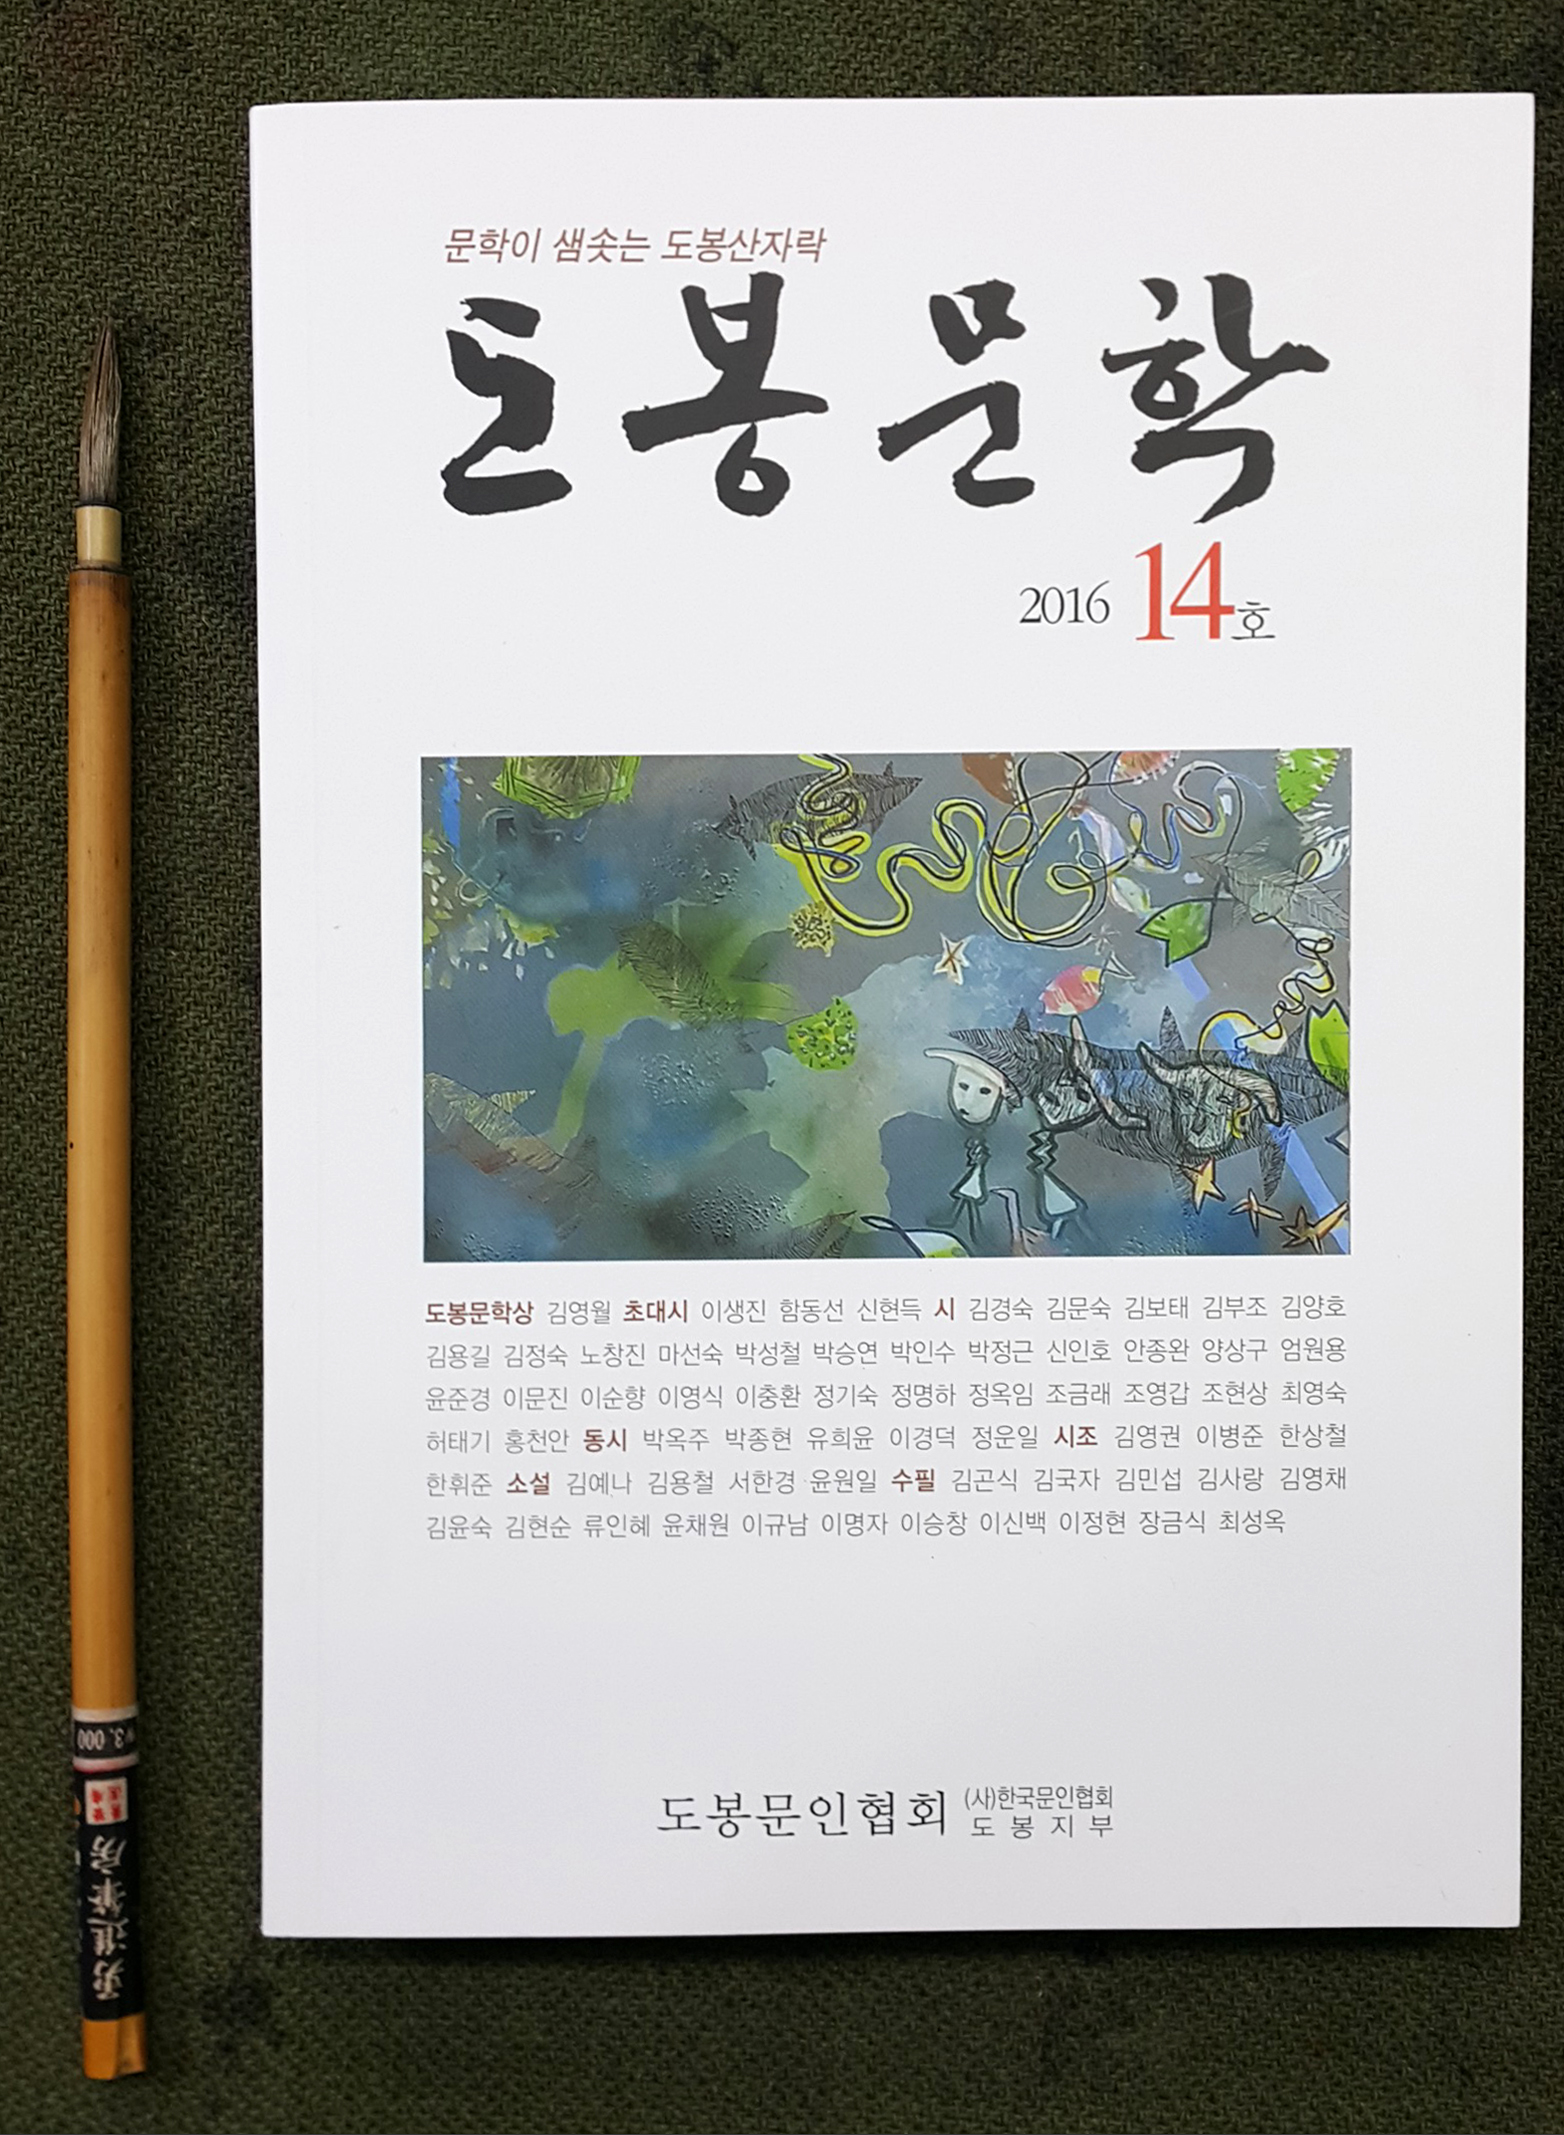 문학이 샘솟는 도봉산자락
도봉문학
2016 14호
도봉문학상 김영월 초대시 이생진 함동선 신현득 시 김경숙 김문숙 김보태 김부조 김양호
김용길 김정숙 노창진 마선숙 박성철 박승연 박인수 박정근 신인호 안종완 양상구 엄원용
윤준경 이문진 이순향 이영식 이충환 정기숙 정명하 정옥임 조금래 조영갑 조현상 최영숙
허태기 홍천안 동시 박옥주 박종현 유희윤 이경덕 정운일 시조 김영권 이병준 한상철
한휘준 소설 김예나 김용철 서한경 윤원일 수필 김곤식 김국자 김민섭 김사랑 김영채
김윤숙 김현순 류인혜 윤채원 이규남 이명자 이승창 이신백 이정현 장금식 최성옥
도봉문인협회 (사)한국문인협회
도봉지부
₩3,000
筆房